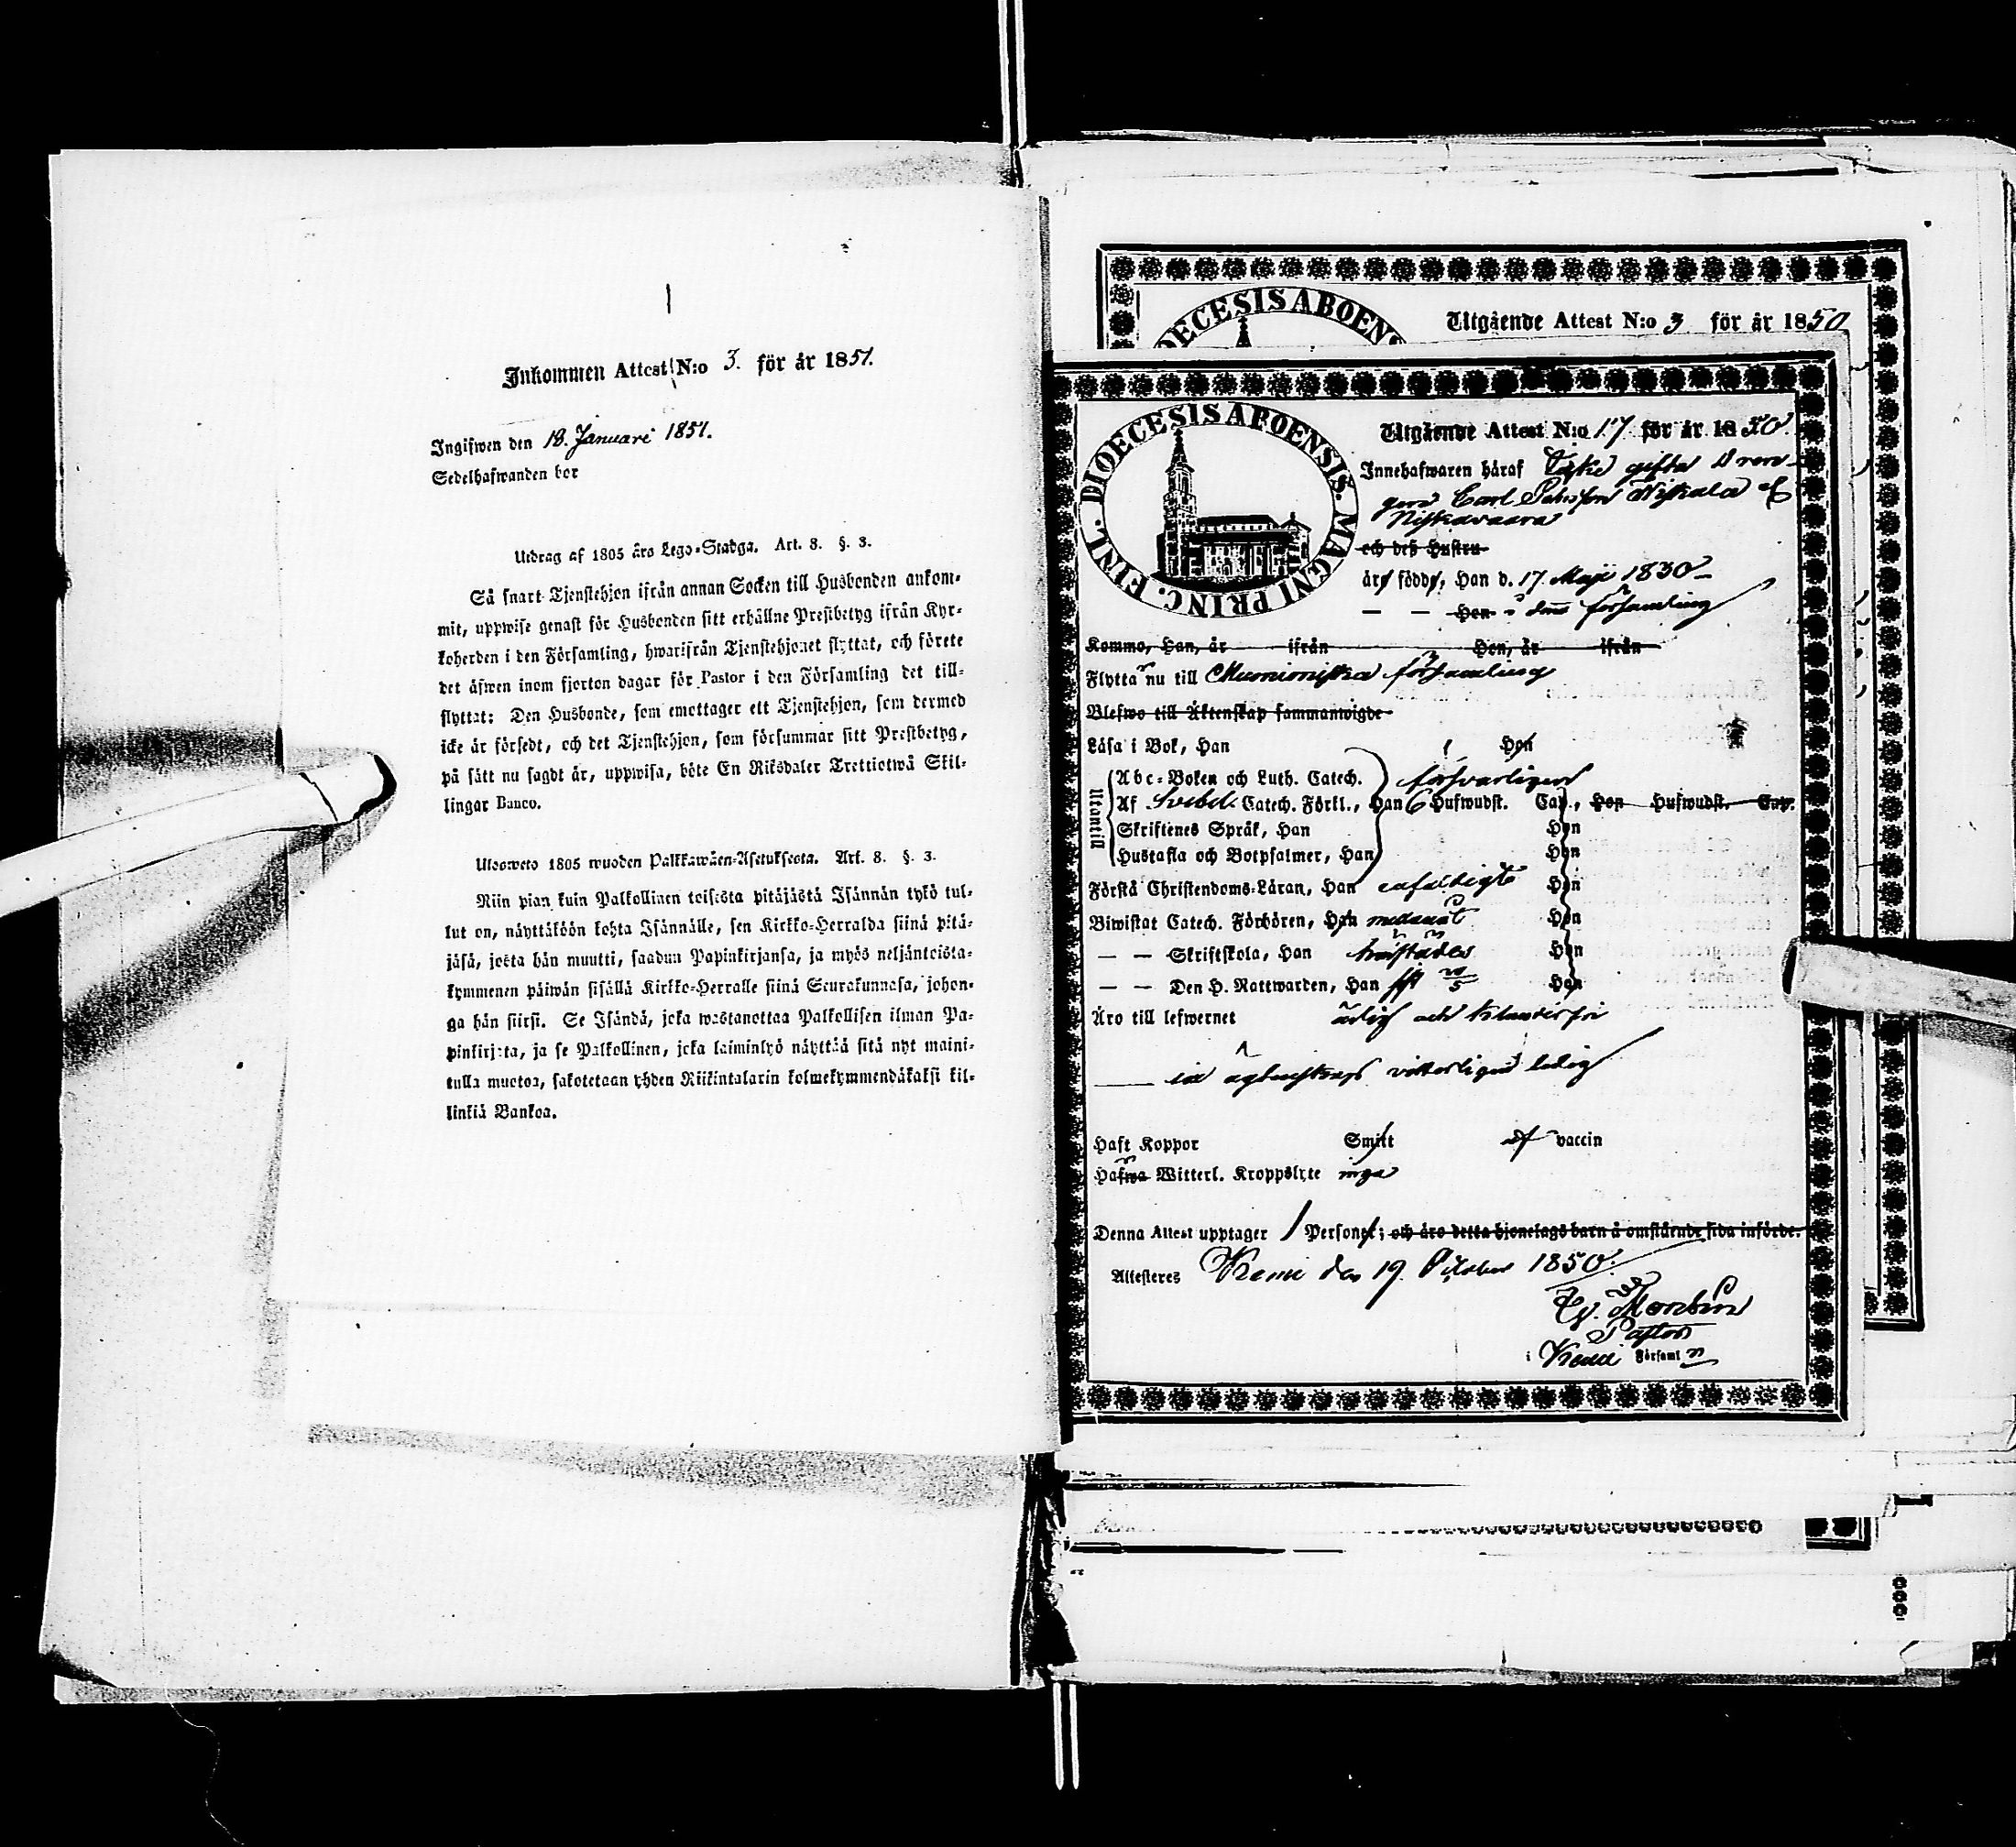 Inkommen Attest N:o 3. för år 1851.
Ingifwen den 18. Januari 1851.
Sedelhafwanden bor
Utdrag af 1805 års Lego-Stadga. Art. 8. §. 3.
Så snart Tjenstehjon ifrån annan Socken till Husbonden ankom-
mit, uppwise genast för Husbonden sitt erhållne Prestbetyg ifrån Kyr-
koherden i den Församling, hwarifrån Tjenstehjonet flyttat, och förete
det äfwen inom fjorton dagar för Pastor i den Församling det till-
flyttat: Den Husbonde, som emottager ett Tjenstehjon, som dermed
icke är försedt, och det Tjenstehjon, som försummar sitt Prestbetyg,
på sätt nu sagdt är, uppwisa, böte En Riksdaler Trettiotwå Skil-
lingar Banco.
Ulosweto 1805 wuoden Palkkawäen-Asetuksesta. Art. 8. §. 3.
Niin pian kuin Palkollinen toisesta pitäjästä Isännän tykö tul-
lut on, näyttäköön kohta Isännälle, sen Kirkko-Herralda siinä pitä-
jäsä, josta hän muutti, saadun Papinkirjansa, ja myös neljäntoista-
kymmenen päiwän sisällä Kirkko-Herralle siinä Seurakunnasa, johon-
ga hän siirsi. Se Isändä, joka wastanottaa Palkollisen ilman Pa-
pinkirjata, ja se Palkollinen, joka laiminlyö näyttää sitä nyt maini-
tulla muotoa, sakotetaan yhden Riikintalarin kolmekymmendäkaksi kil-
linkiä Bankoa.
DIOECESIS ABOENS
Utgående Attest N:o 3 för år 1850
DIOECESIS ABOENSIS. MAGNI PRINC. FINL.
Utgående Attest N:o 17 för år 1850.
Innehafwaren häraf gifta
Carl Niskala
Niskavaara
och deß Hustru
äro födde, Han d. 17 Maji 1830
— — Hon i denna församling
Kommo, Han, år ifrån Hon, år ifrån
Flytta nu till Muonioniska församling
Blefwo till Äktenskap sammanwigde
Läsa i Bok, Han Hon
Utantill
Abc-Boken och Luth. Catech. försvarligen
Af Svebel. Catech. Förkl., Han 6 Hufwudst. Cap., Hon Hufwudst. Cap.
Skriftenes Språk, Han Hon
Hustafla och Botpsalmer, Han Hon
Förstå Christendoms-Läran, Han enfaldigt Hon
Biwistat Catech. Förhören, Han Hon
— — Skriftskola, Han Hon
— — Den H. Nattwarden, Han Hon
Äro till lefwernet ärlig och klanderfri
— vitterligen ledig
Haft Koppor Smitt af vaccin
Hafwa Witterl. Kroppslyte inga
Denna Attest upptager 1 Personer; och äro detta hjonelags barn å omstående sida införde.
Attesteres Kemi den 19. October 1850.
Pastor
i Kemi Församl